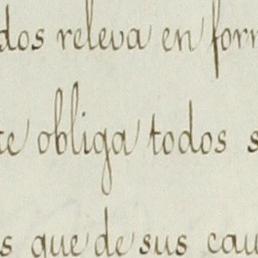 dos releva en for
te obliga todos s
s que de sus cau